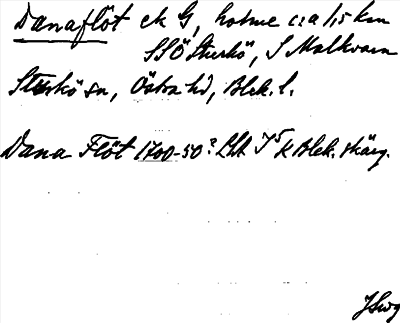 Danaflöt ek G, holme c:a 1,5 km
SSÖ Sturkö, S Malkvarn
Sturkö sn, Östra hd, Blek. l.
Dana Flöt 1700-50? Lhk I 5 k Blek. skärg.